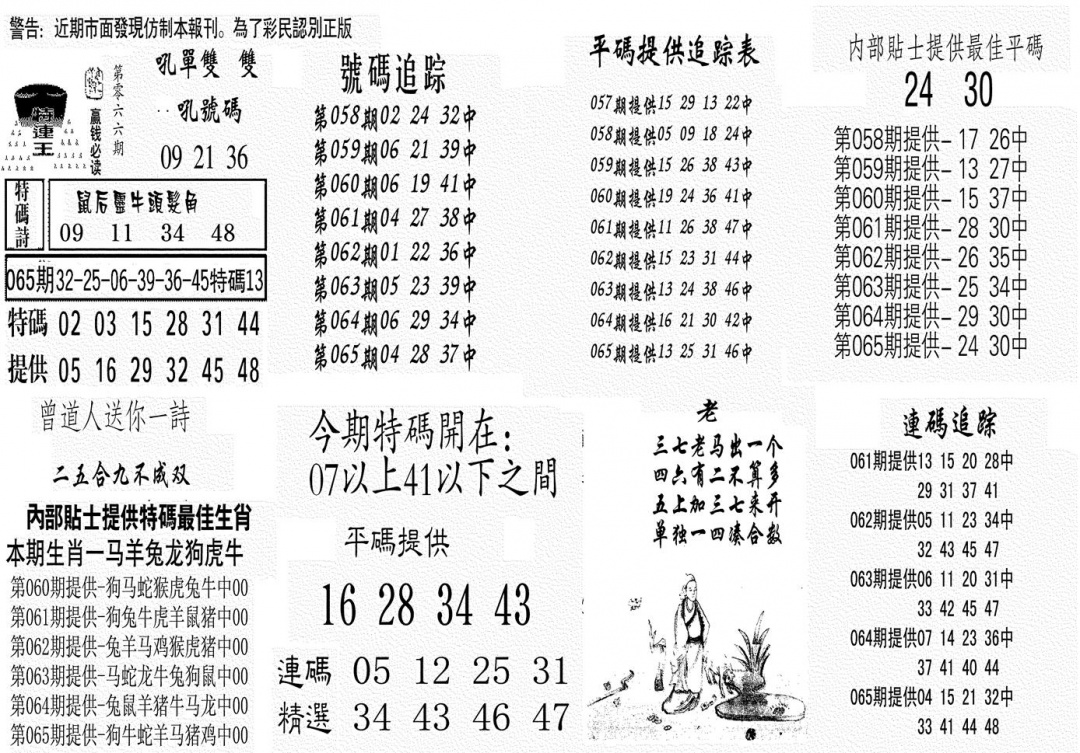 警告: 近期市面發現仿制本報刊。為了彩民認別正版
特連王
第零六六期
贏钱必读
吼單雙 雙
吼號碼
09 21 36
特碼詩
鼠后靈牛頭髮角
09 11 34 48
065期32-25-06-39-36-45特碼13
特碼 02 03 15 28 31 44
提供 05 16 29 32 45 48
號碼追踪
第058期02 24 32中
第059期06 21 39中
第060期06 19 41中
第061期04 27 38中
第062期01 22 36中
第063期05 23 39中
第064期06 29 34中
第065期04 28 37中
平碼提供追踪表
057期提供15 29 13 22中
058期提供05 09 18 24中
059期提供15 26 38 43中
060期提供19 24 36 41中
061期提供11 26 38 47中
062期提供15 23 31 44中
063期提供13 24 38 46中
064期提供16 21 30 42中
065期提供13 25 31 46中
内部貼士提供最佳平碼
24 30
第058期提供- 17 26中
第059期提供- 13 27中
第060期提供- 15 37中
第061期提供- 28 30中
第062期提供- 26 35中
第063期提供- 25 34中
第064期提供- 29 30中
第065期提供- 24 30中
曾道人送你一詩
二五合九不成双
內部貼士提供特碼最佳生肖
本期生肖一马羊兔龙狗虎牛
第060期提供-狗马蛇猴虎兔牛中00
第061期提供-狗兔牛虎羊鼠猪中00
第062期提供-兔羊马鸡猴虎猪中00
第063期提供-马蛇龙牛兔狗鼠中00
第064期提供-兔鼠羊猪牛马龙中00
第065期提供-狗牛蛇羊马猪鸡中00
今期特碼開在:
07以上41以下之間
平碼提供
16 28 34 43
連碼 05 12 25 31
精選 34 43 46 47
老
三七老马出一个
四六有二不算多
五上加三七来开
单独一四凑合数
連碼追踪
061期提供13 15 20 28中
29 31 37 41
062期提供05 11 23 34中
32 43 45 47
063期提供06 11 20 31中
33 42 45 47
064期提供07 14 23 36中
37 41 40 44
065期提供04 15 21 32中
33 41 44 48